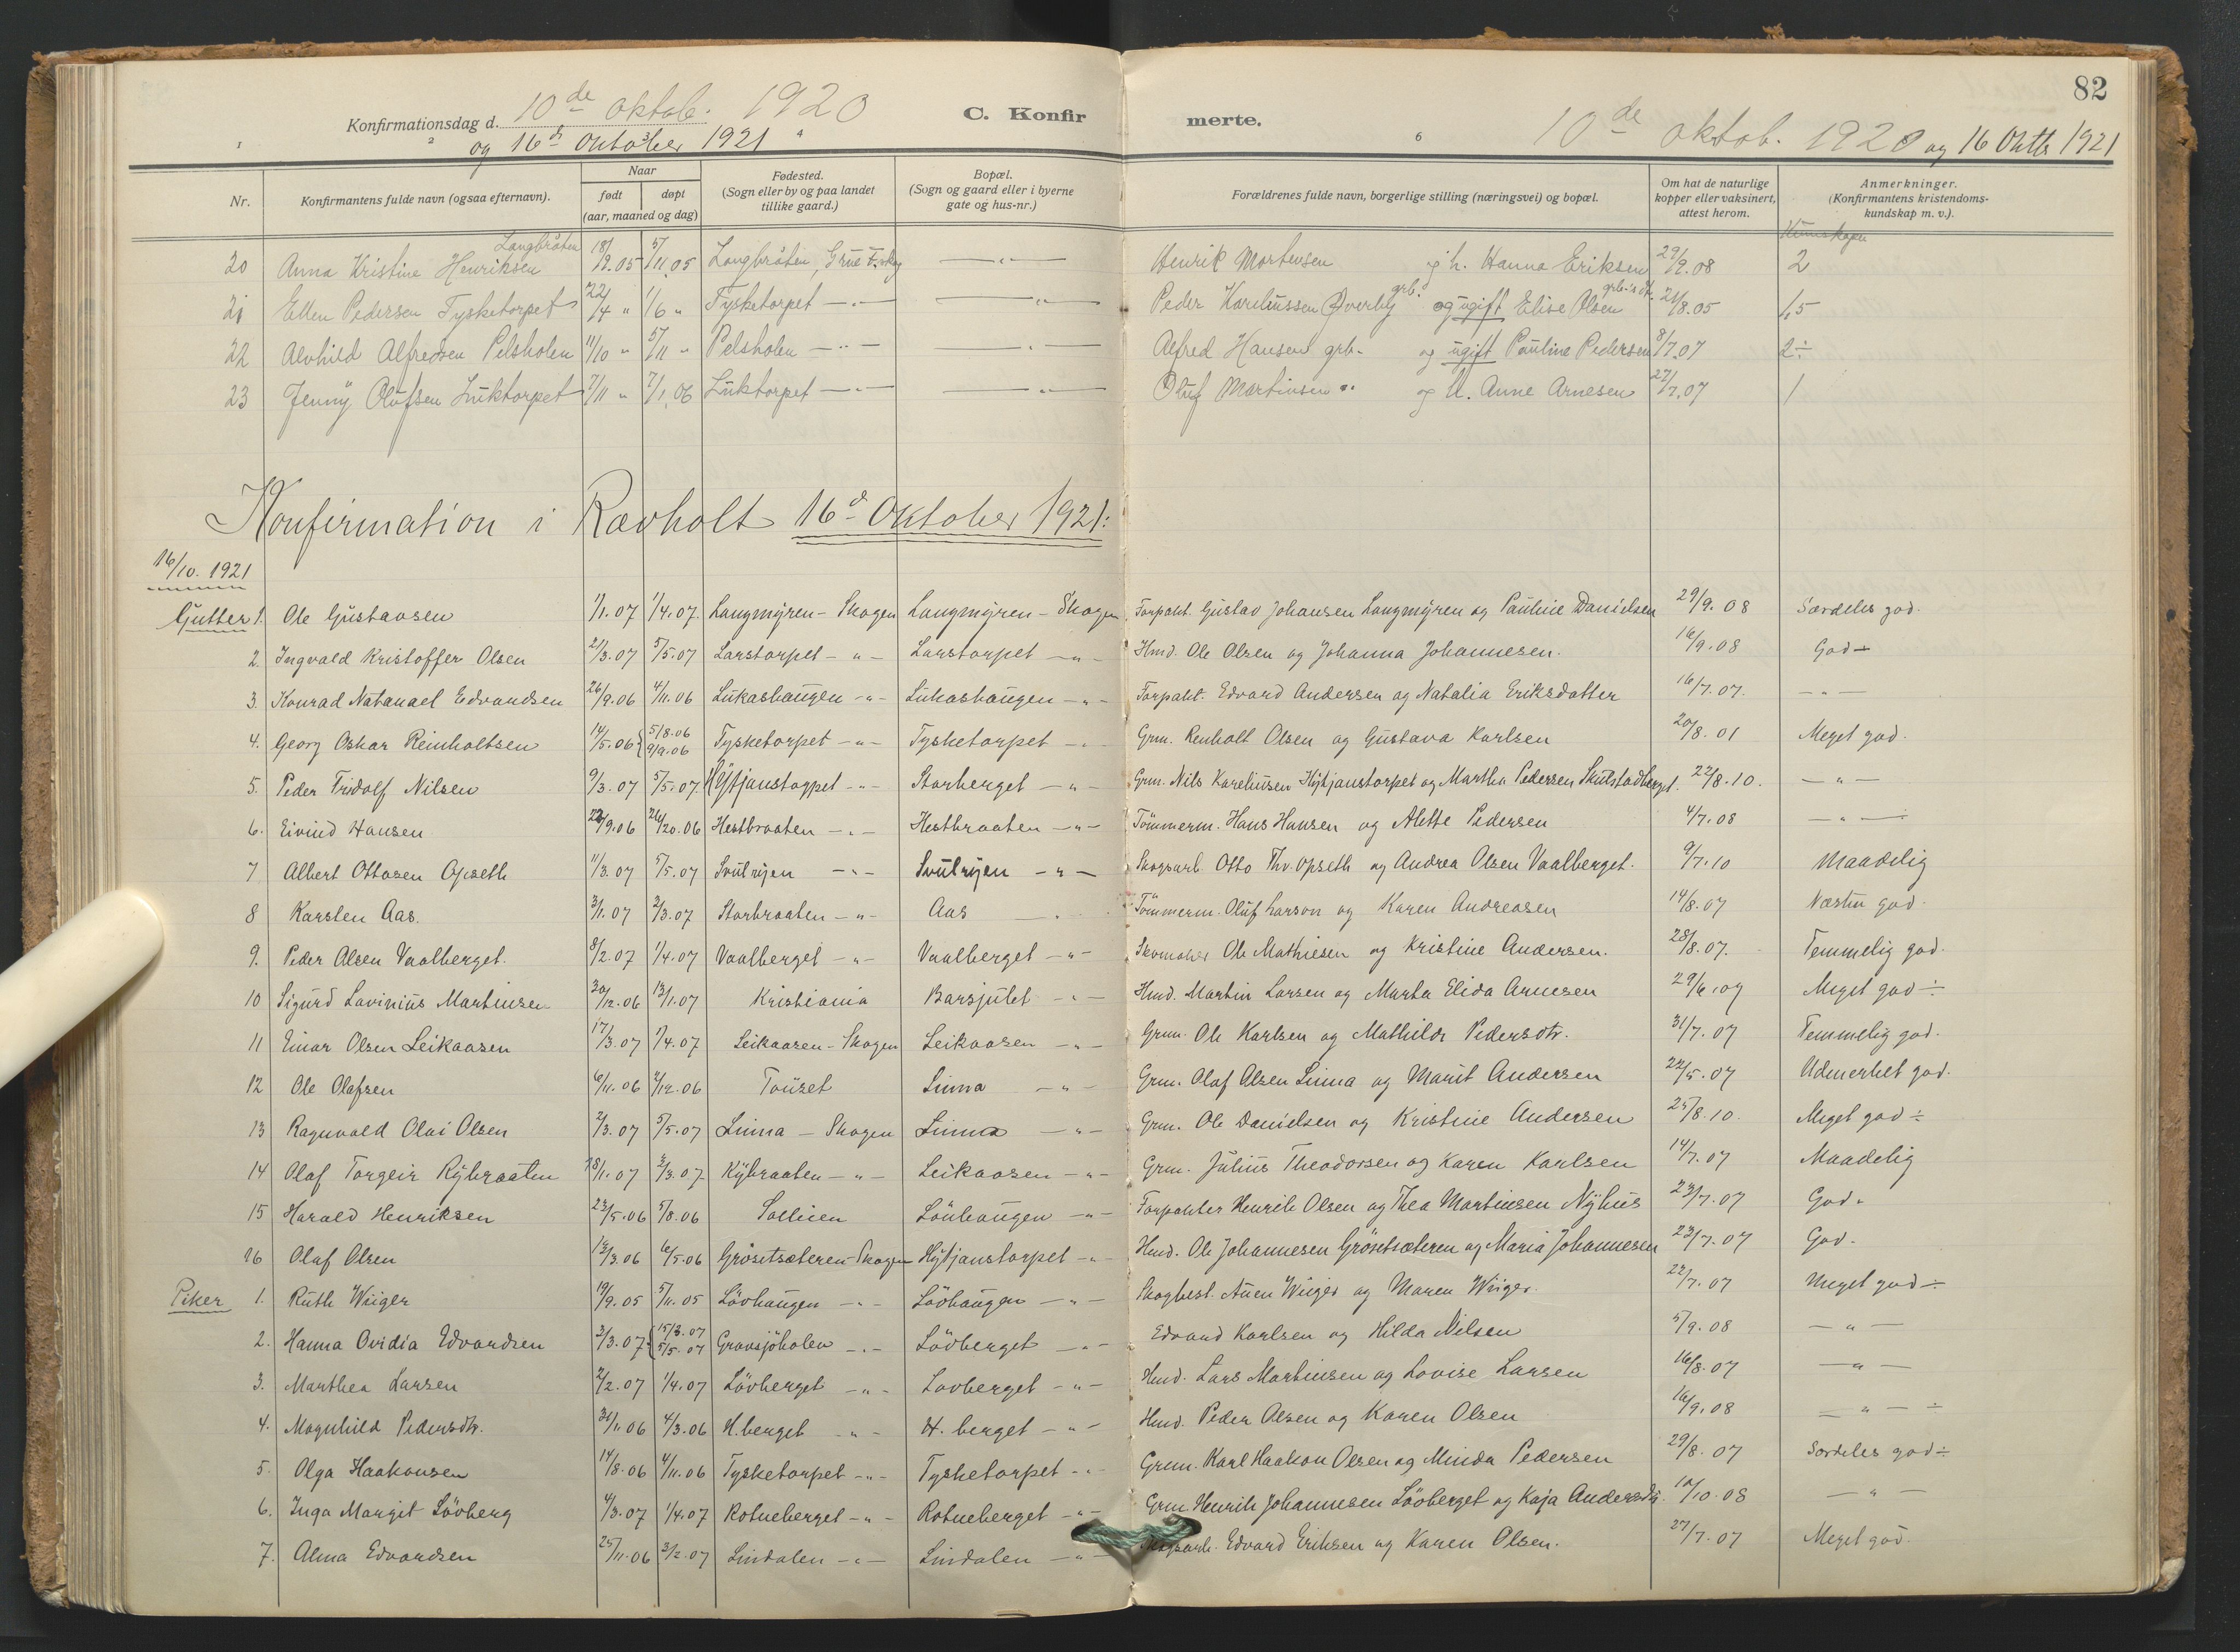 82
Konfirmationsdag d. 10de oktob. 1920
og 16d Oktober 1921
C. Konfirmerte.
10de oktob. 1920 og 16 Oktb 1921
1 2 3 4 6
Nr.
Konfirmantens fulde navn (ogsaa efternavn).
Naar
født
døpt
(aar, maaned og dag)
Fødested.
(Sogn eller by og paa landet
tillike gaard.)
Bopæl.
(Sogn og gaard eller i byerne
gate og hus-nr.)
Forældrenes fulde navn, borgerlige stilling (næringsvei) og bopæl.
Om hat de naturlige
kopper eller vaksinert,
attest herom.
Anmerkninger.
(Konfirmantens kristendoms-
kundskap m. v.).
Langbråten
20 Anna Kristine Henriksen 18/9.05 5/11.05 Langbråten, Grue F.skog —"— Henrik Mortensen og h. Hanna Eriksen 29/9.08 2
21 Ellen Pedersen Tysketorpet 22/4 " 1/6 " Tysketorpet —"— —"— Peder Kareliussen Øverby grb. og ugift Elise Olsen 21/8.05 1,5
22 Alvhild Alfredsen Pelsholen 11/10 " 5/11 " Pelsholen —"— —"— Alfred Hansen grb. og ugift Pauline Pedersen 8/7.07 2÷
23 Jenny Olufsen Luktorpet 7/11 " 7/1.06 Luktorpet —"— —"— Oluf Martinsen " og h. Anne Arnesen 27/7.07 1
Konfirmation i Revholt 16d Oktober 1921:
16/10. 1921
Gutter 1. Ole Gustavsen 1/1.07 1/4.07 Langmyren - Skogen Langmyren - Skogen Forpakt. Gustav Johansen Langmyren og Pauline Danielsen 29/9.08 Særdeles god.
2. Ingvald Kristoffer Olsen 21/3.07 5/5.07 Larstorpet - " - Larstorpet - " - Hmd. Ole Olsen og Johanna Johannesen. 16/9.08 God ÷
3. Konrad Natanael Edvardsen 26/9.06 4/11.06 Lukashaugen - " - Lukashaugen - " - Forpakt. Edvard Andersen og Natalia Eriksdatter 16/7.07. - " -
4. Georg Oskar Reinholtsen 14/5.06 { 5/8.06 9/9.06 Tysketorpet - " - Tysketorpet - " - Grm. Renholt Olsen og Gustava Karlsen 20/8.01 Meget god.
5. Peder Fridolf Nilsen 9/3.07 5/5.07 Hytjanstorpet - " - Storberget - " - Grm. Nils Kareliusen Hytjanstorpet og Martha Pedersen Skulstadberget. 22/8.10. - " -
6. Eivind Hansen /9.06 Hestbraaten - " - Hestbraaten - " - Tömmerm. Hans Hansen og Alette Pedersen 4/7.08 - " - ÷
7 Albert Ottosen Opseth 11/3.07 5/5.07 Svulrijen - " - Svulrijen - " - Skogsarb. Otto Thv. Opseth og Andrea Olsen Vaalberget. 9/7.10 Maadelig
8 Karsten Aas. 3/1.07 3/3.07 Storbraaten - " - Aas - " - Tömmerm. Oluf Larson og Karen Andreasen 14/8.07 Næsten god.
9. Peder Olsen Vaalberget. 8/2.07 1/4.07 Vaalberget - " - Vaalberget - " - Skomaker Ole Mathiesen og Kristine Andersen. 28/8.07. Temmelig god.
10 Sigurd Lavinius Martinsen 30/12.06 13/1.07 Kristiania Barsjulet - " - Hmd. Martin Larsen og Marta Elida Arnesen 29/6.09 Meget god ÷
11 Einar Olsen Leikaasen 17/3.07 1/4.07 Leikaasen - Skogen Leikaasen - " - Grm. Ole Karlsen og Mathilde Pedersdtr. 31/7.07 Temmelig god.
12 Ole Olafsen 6/11.06 2/12.06 Touset Linna - " - Grm. Olaf Olsen Linna og Marit Andersen 22/5.07 Udmerket god.
13 Ragnvald Olai Olsen 2/3.07 5/5.07 Linna - Skogen Linna - " - Grm. Ole Danielsen og Kristine Andersen 25/8.10. Meget god ÷
14 Olaf Torgeir Rybraaten 28/1.07 3/3.07 Rybraaten - " - Leikaasen - " - Grm. Julius Theodorsen og Karen Karlsen 14/7.07 Maadelig
15 Harald Henriksen 23/5.06 5/8.06 Sollien Lönhaugen - " - Forpakter Henrik Olsen og Thea Martinsen Nyhus 23/7.07 God.
16 Olaf Olsen 12/3.06 6/5.06 Grösetsæteren - Skogen Hytjanstorpet - " - Hmd. Ole Johannesen Grösetsæteren og Maria Johannesen 23/7.07 God.
Piker 1. Ruth Wiiger 19/9.05 5/11.05 Lövhaugen - " - Lövhaugen - " - Skogbest. Auen Wiiger og Maren Wiiger. 22/7.07 Meget god ÷
2. Hanna Ovidia Edvardsen 3/3.07 { 15/3.07 5/5.07 Gravsjöholen - " - Lövberget - " - Edvard Karlsen og Hilda Nilsen 5/9.08 - " -
3. Marthea Larsen 2/2.07 1/4.07 Lövberget - " - Lovberget - " - Hmd. Lars Martinsen og Lovise Larsen 16/8.07 - " -
4. Magnhild Pedersdtr. 31/1.06 4/3.06 H.berget - " - H. berget - " - Hmd. Peder Olsen og Karen Olsen 16/9.08 - " - ÷
5. Olga Haakonsen 14/8.06 4/11.06 Tysketorpet - " - Tysketorpet - " - Grm. Karl Haakon Olsen og Minda Pedersen 29/8.07 Særdeles god ÷
6. Inga Margit Lövberg 4/3.07 1/4.07 Rotneberget - " - Rotneberget - " - Grm Henrik Johannesen Lövberget og Kaja Andersdtr. 10/10.08 - " -
7. Alma Edvardsen 25/11.06 3/2.07 Lindalen - " - Lindalen - " - Skogsarb. Edvard Eriksen og Karen Olsen. 27/7.07 Meget god.